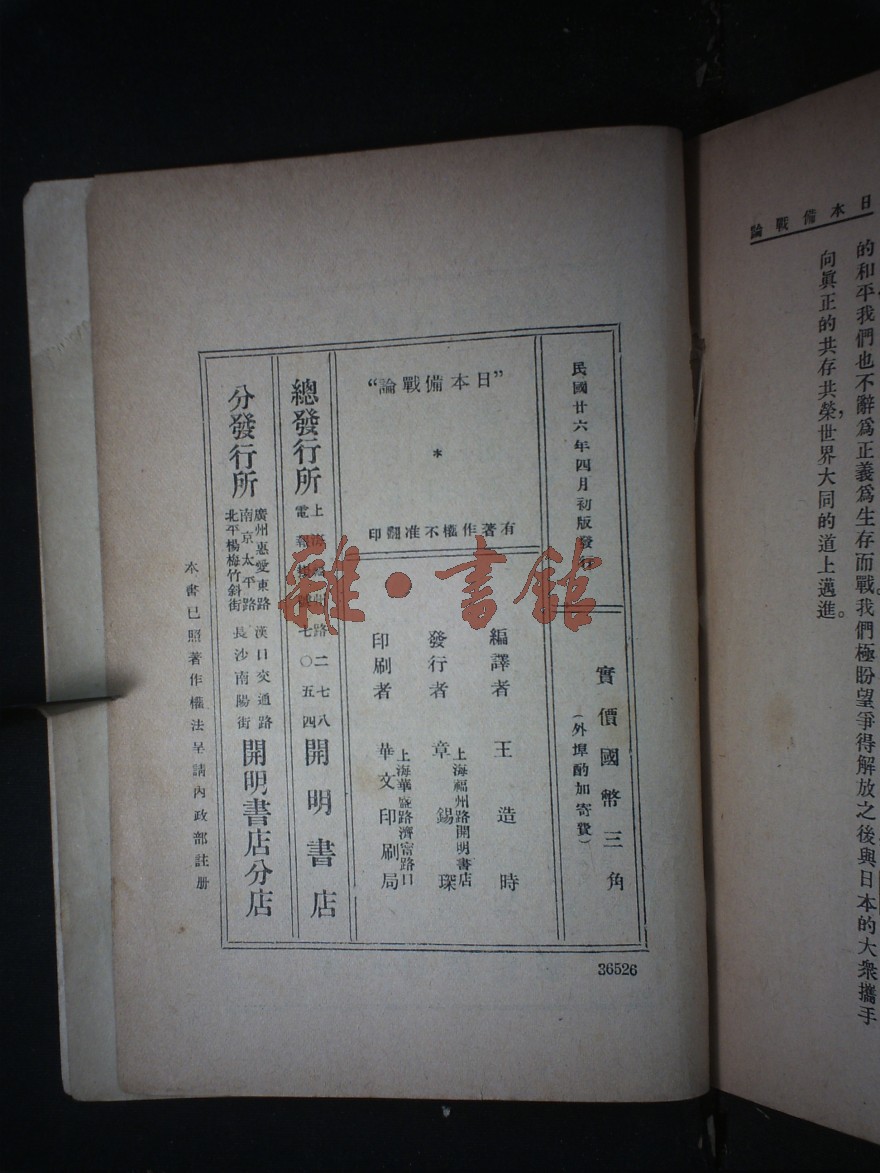 日本備戰論
的和平我們也不辭爲正義爲生存而戰。我們極盼望爭得解放之後與日本的大衆攜手
向眞正的共存共榮，世界大同的道上邁進。
民國廿六年四月初版發行
實價國幣三角
（外埠酌加寄費）
“日本備戰論”
*
有著作權不准翻印
編譯者 王造時
發行者 章錫琛
上海福州路開明書店
印刷者 華文印刷局
上海華盛路濟甯路口
總發行所 上海福州路二七八 開明書店
電報掛號七〇五四
分發行所 廣州惠愛東路 漢口交通路 開明書店分店
南京太平路 長沙南陽街
北平楊梅竹斜街
本書已照著作權法呈請內政部註册
36526
雜·書館